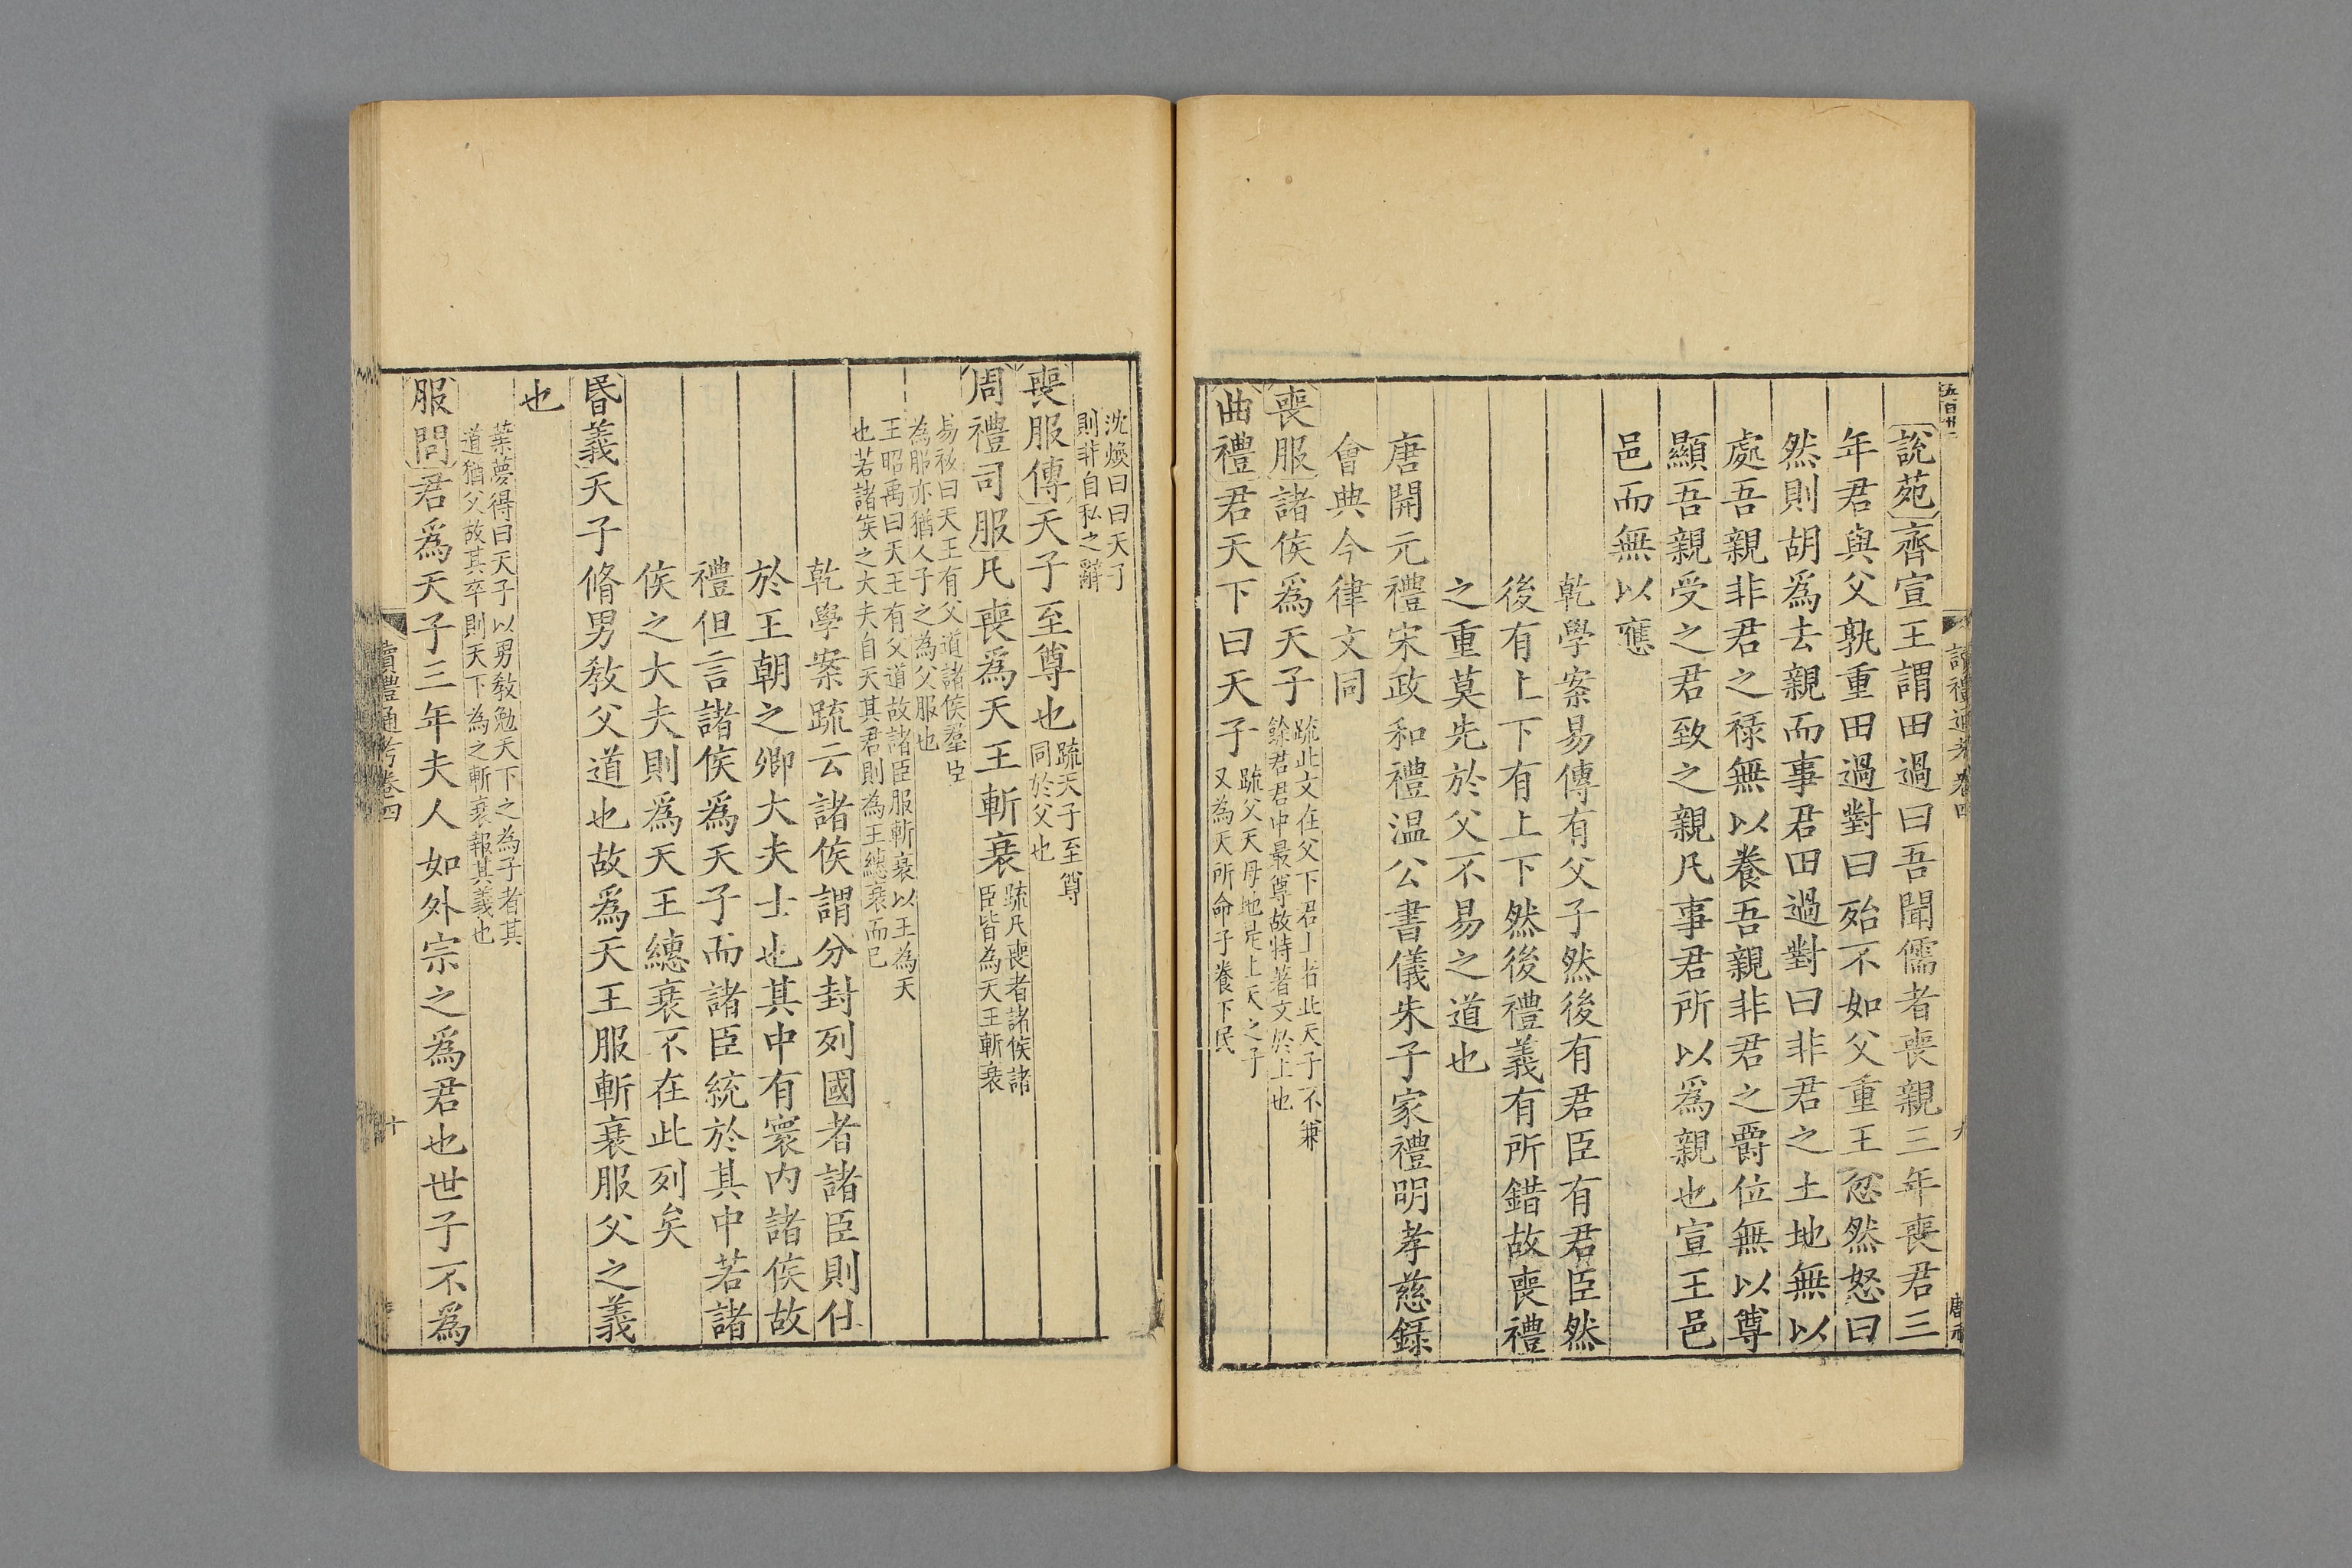 五百卅一
讀禮通考卷四
九
說苑齊宣王謂田過曰吾聞儒者喪親三年喪君三
年君與父孰重田過對曰殆不如父重王忿然怒曰
然則胡爲去親而事君田過對曰非君之土地無以
處吾親非君之祿無以養吾親非君之爵位無以尊
顯吾親受之君致之親凡事君所以爲親也宣王邑
邑而無以應
乾學案易傳有父子然後有君臣有君臣然
後有上下有上下然後禮義有所錯故喪禮
之重莫先於父不易之道也
唐開元禮宋政和禮溫公書儀朱子家禮明孝慈錄
會典今律文同
喪服諸侯爲天子
疏此文在父下君上者此天子不兼
餘君君中最尊故特著文於上也
曲禮君天下曰天子
疏父天母地是上天之子
又為天所命子養下民
沈煥曰曰天子
則非自私之辭
喪服傳天子至尊也
疏天子至尊
同於父也
周禮司服凡喪爲天王斬衰
疏凡喪者諸侯諸
臣皆為天王斬衰
易祓曰天王有父道諸侯羣臣
為服亦猶人子之為父服也
王昭禹曰天王有父道故諸臣服斬衰以王為天
也若諸侯之大夫自天其君則為王繐衰而已
乾學案疏云諸侯謂分封列國者諸臣則仕
於王朝之卿大夫士也其中有寰內諸侯故
禮但言諸侯爲天子而諸臣統於其中若諸
侯之大夫則爲天王繐衰不在此列矣
昏義天子脩男教父道也故爲天王服斬衰服父之義
也
葉夢得曰天子以男教勉天下之為子者其
道猶父故其卒則天下為之斬衰報其義也
服問君爲天子三年夫人如外宗之爲君也世子不爲
讀禮通考卷四
十